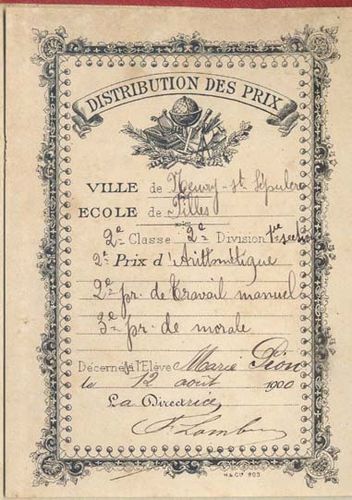 DISTRIBUTION DES PRIX
VILLE de Neuvy-St Sépulcre
ECOLE de Filles
2e Classe 2e Division 1re section
2e Prix d'Arithmétique
2e pr. de travail manuel
3e pr. de morale
Décerné à l'Elève Marie Pion
le 12 août 1900
La Directrice